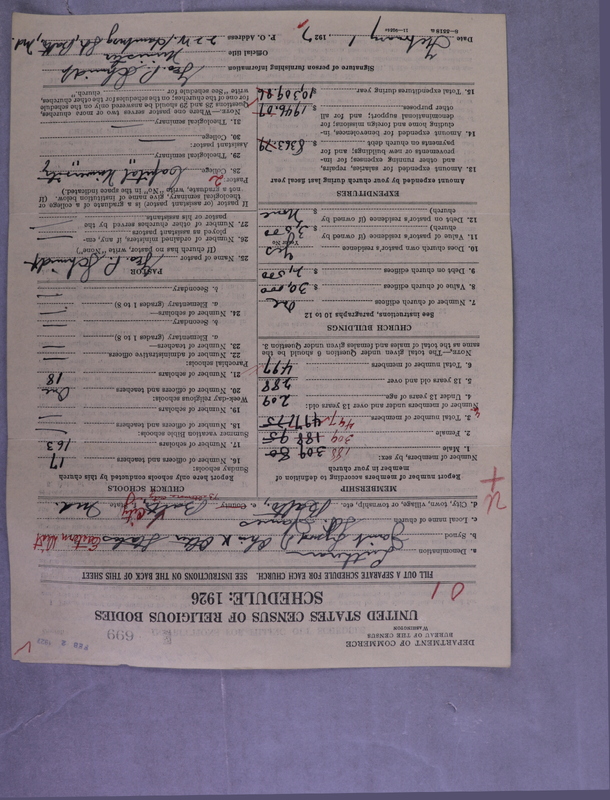 DEPARTMENT OF COMMERCE
BUREAU OF THE CENSUS
WASHINGTON
FEB 2 1927
699
UNITED STATES CENSUS OF RELIGIOUS BODIES
SCHEDULE: 1926
01
FILL OUT A SEPARATE SCHEDULE FOR EACH CHURCH. SEE INSTRUCTIONS ON THE BACK OF THIS SHEET
a. Denomination Lutheran
b. Synod Joint Synod of Ohio & Other States Eastern Dist
c. Local name of church St. James
d. City, town, village, or township, etc. Balto, e. County Balto, City State Md.
MEMBERSHIP
Report number of members according to definition of member in your church
Number of members, by sex:
1. Male 188 309 80
2. Female 309 188 95
3. Total number of members 497 497 175
Number of members under and over 13 years old:
4. Under 13 years of age 209
5. 13 years old and over 288
6. Total number of members 497
NOTE.—The total given under Question 6 should be the same as the total of males and females given under Question 3.
CHURCH BUILDINGS
See instructions, paragraphs 10 to 12
7. Number of church edifices One
8. Value of church edifices $ 30,000
9. Debt on church edifices $ 2,500
10. Does church own pastor's residence Yes
Yes or No
11. Value of pastor's residence (if owned by church) $ 3,500
12. Debt on pastor's residence (if owned by church) $ None
EXPENDITURES
Amount expended by your church during last fiscal year
13. Amount expended for salaries, repairs, and other running expenses; for improvements or new buildings; and for payments on church debt $ 8363.79
14. Amount expended for benevolences, including home and foreign missions; for denominational support; and for all other purposes $ 1946.07
15. Total expenditures during year $ 10309.86
CHURCH SCHOOLS
Report here only schools conducted by this church
Sunday schools:
16. Number of officers and teachers 17
17. Number of scholars 163
Summer vacation Bible schools:
18. Number of officers and teachers
19. Number of scholars
Week-day religious schools:
20. Number of officers and teachers One
21. Number of scholars 18
Parochial schools:
22. Number of administrative officers
23. Number of teachers—
a. Elementary (grades 1 to 8)
b. Secondary
24. Number of scholars—
a. Elementary (grades 1 to 8)
b. Secondary
PASTOR
25. Name of pastor Geo. P. Schmidt
(If church has no pastor, write "None")
26. Number of ordained ministers, if any, employed as assistant pastors
27. Number of other churches served by the pastor or his assistants
If pastor or assistant pastor is a graduate of a college or theological seminary, give name of institution below. (If not a graduate, write "No" in the space indicated:)
Pastor: 2
28. College Capital University
29. Theological seminary
Assistant pastor:
30. College
31. Theological seminary
NOTE.—Where one pastor serves two or more churches, Questions 28 and 29 should be answered only on the schedule for one of the churches; on the schedules for the other churches, write "See schedule for church."
Signature of person furnishing information Geo. P. Schmidt
Official title Minister
P. O. Address 22 W. Hamburg St, Balto, Md.
Date February 1 1927